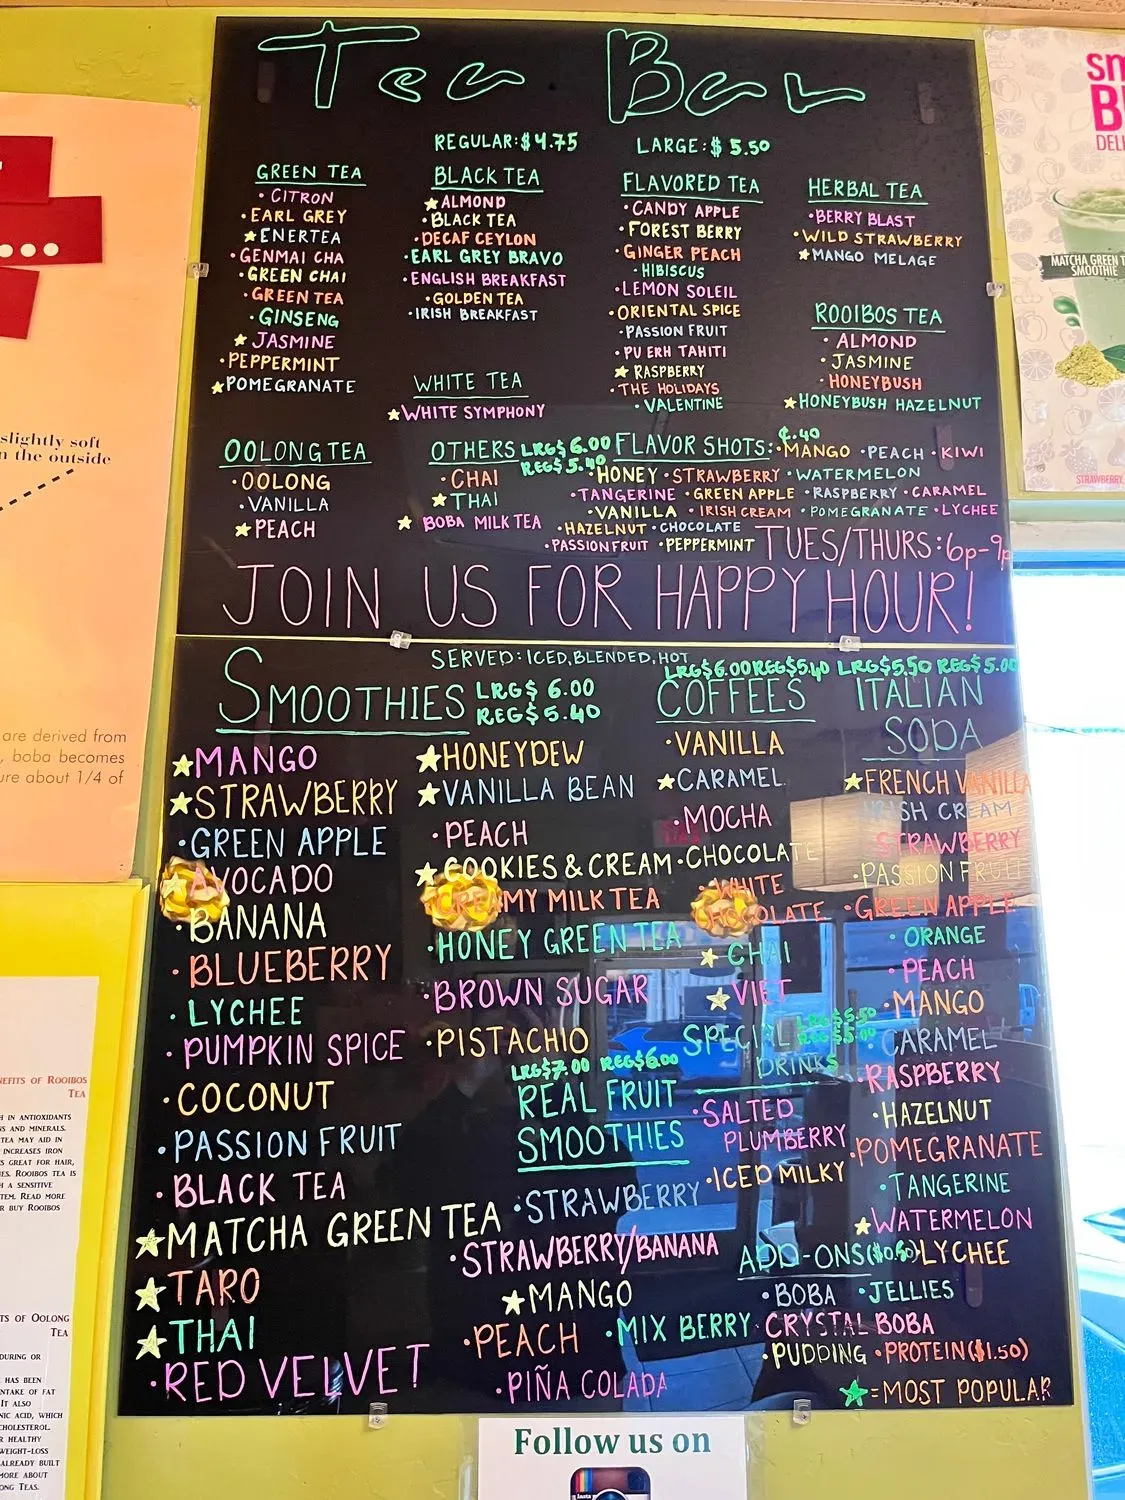 Tea Bar
REGULAR: $4.75 LARGE: $5.50
GREEN TEA
• CITRON
• EARL GREY
★ ENERTEA
• GENMAI CHA
• GREEN CHAI
• GREEN TEA
• GINSENG
★ JASMINE
• PEPPERMINT
★ POMEGRANATE
BLACK TEA
★ ALMOND
• BLACK TEA
• DECAF CEYLON
• EARL GREY BRAVO
• ENGLISH BREAKFAST
• GOLDEN TEA
• IRISH BREAKFAST
WHITE TEA
★ WHITE SYMPHONY
FLAVORED TEA
• CANDY APPLE
• FOREST BERRY
• GINGER PEACH
• HIBISCUS
• LEMON SOLEIL
• ORIENTAL SPICE
• PASSION FRUIT
• PU ERH TAHITI
★ RASPBERRY
• THE HOLIDAYS
• VALENTINE
HERBAL TEA
• BERRY BLAST
• WILD STRAWBERRY
★ MANGO MELAGE
ROOIBOS TEA
• ALMOND
• JASMINE
• HONEYBUSH
★ HONEYBUSH HAZELNUT
OOLONG TEA
• OOLONG
• VANILLA
★ PEACH
OTHERS LRG$6.00
REG$5.40
• CHAI
★ THAI
★ BOBA MILK TEA
FLAVOR SHOTS: $.40
• MANGO • PEACH • KIWI
• HONEY • STRAWBERRY • WATERMELON
• TANGERINE • GREEN APPLE • RASPBERRY • CARAMEL
• VANILLA • IRISH CREAM • POMEGRANATE • LYCHEE
• HAZELNUT • CHOCOLATE
• PASSIONFRUIT • PEPPERMINT
TUES/THURS: 6p-9p
JOIN US FOR HAPPY HOUR!
SERVED: ICED, BLENDED, HOT
SMOOTHIES LRG$ 6.00
REG$ 5.40
★ MANGO
★ STRAWBERRY
• GREEN APPLE
★ AVOCADO
• BANANA
• BLUEBERRY
• LYCHEE
• PUMPKIN SPICE
• COCONUT
• PASSION FRUIT
• BLACK TEA
★ MATCHA GREEN TEA
★ TARO
★ THAI
• RED VELVET
★ HONEYDEW
★ VANILLA BEAN
• PEACH
★ COOKIES & CREAM
CREAMY MILK TEA
• HONEY GREEN TEA
• BROWN SUGAR
• PISTACHIO
LRG$7.00 REG$6.00
REAL FRUIT
SMOOTHIES
• STRAWBERRY
• STRAWBERRY/BANANA
★ MANGO
• PEACH • MIX BERRY
• PIÑA COLADA
LRG$6.00 REG$5.40
COFFEES
• VANILLA
★ CARAMEL
• MOCHA
• CHOCOLATE
• WHITE
CHOCOLATE
★ CHAI
★ VIET
SPECIAL LRG$5.50
REG$5.00
DRINKS
• SALTED
PLUMBERRY
• ICED MILKY
LRG$5.50 REG$5.00
ITALIAN
SODA
★ FRENCH VANILLA
IRISH CREAM
• STRAWBERRY
• PASSION FRUIT
• GREEN APPLE
• ORANGE
• PEACH
• MANGO
• CARAMEL
• RASPBERRY
• HAZELNUT
• POMEGRANATE
• TANGERINE
★ WATERMELON
• LYCHEE
ADD-ONS($0.50)
• BOBA • JELLIES
• CRYSTAL BOBA
• PUDDING • PROTEIN($1.50)
★ = MOST POPULAR
Follow us on
slightly soft
n the outside
are derived from
, boba becomes
ure about 1/4 of
NEFITS OF ROOIBOS
TEA
H IN ANTIOXIDANTS
S AND MINERALS.
TEA MAY AID IN
INCREASES IRON
S GREAT FOR HAIR,
ES. ROOIBOS TEA IS
H A SENSITIVE
TEM. READ MORE
R BUY ROOIBOS
TS OF OOLONG
TEA
DURING OR
HAS BEEN
NTAKE OF FAT
IT ALSO
NIC ACID, WHICH
CHOLESTEROL.
R HEALTHY
WEIGHT-LOSS
ALREADY BUILT
MORE ABOUT
ONG TEAS.
sm
B
DELI
MATCHA GREEN T
SMOOTHIE
STRAWBERRY,